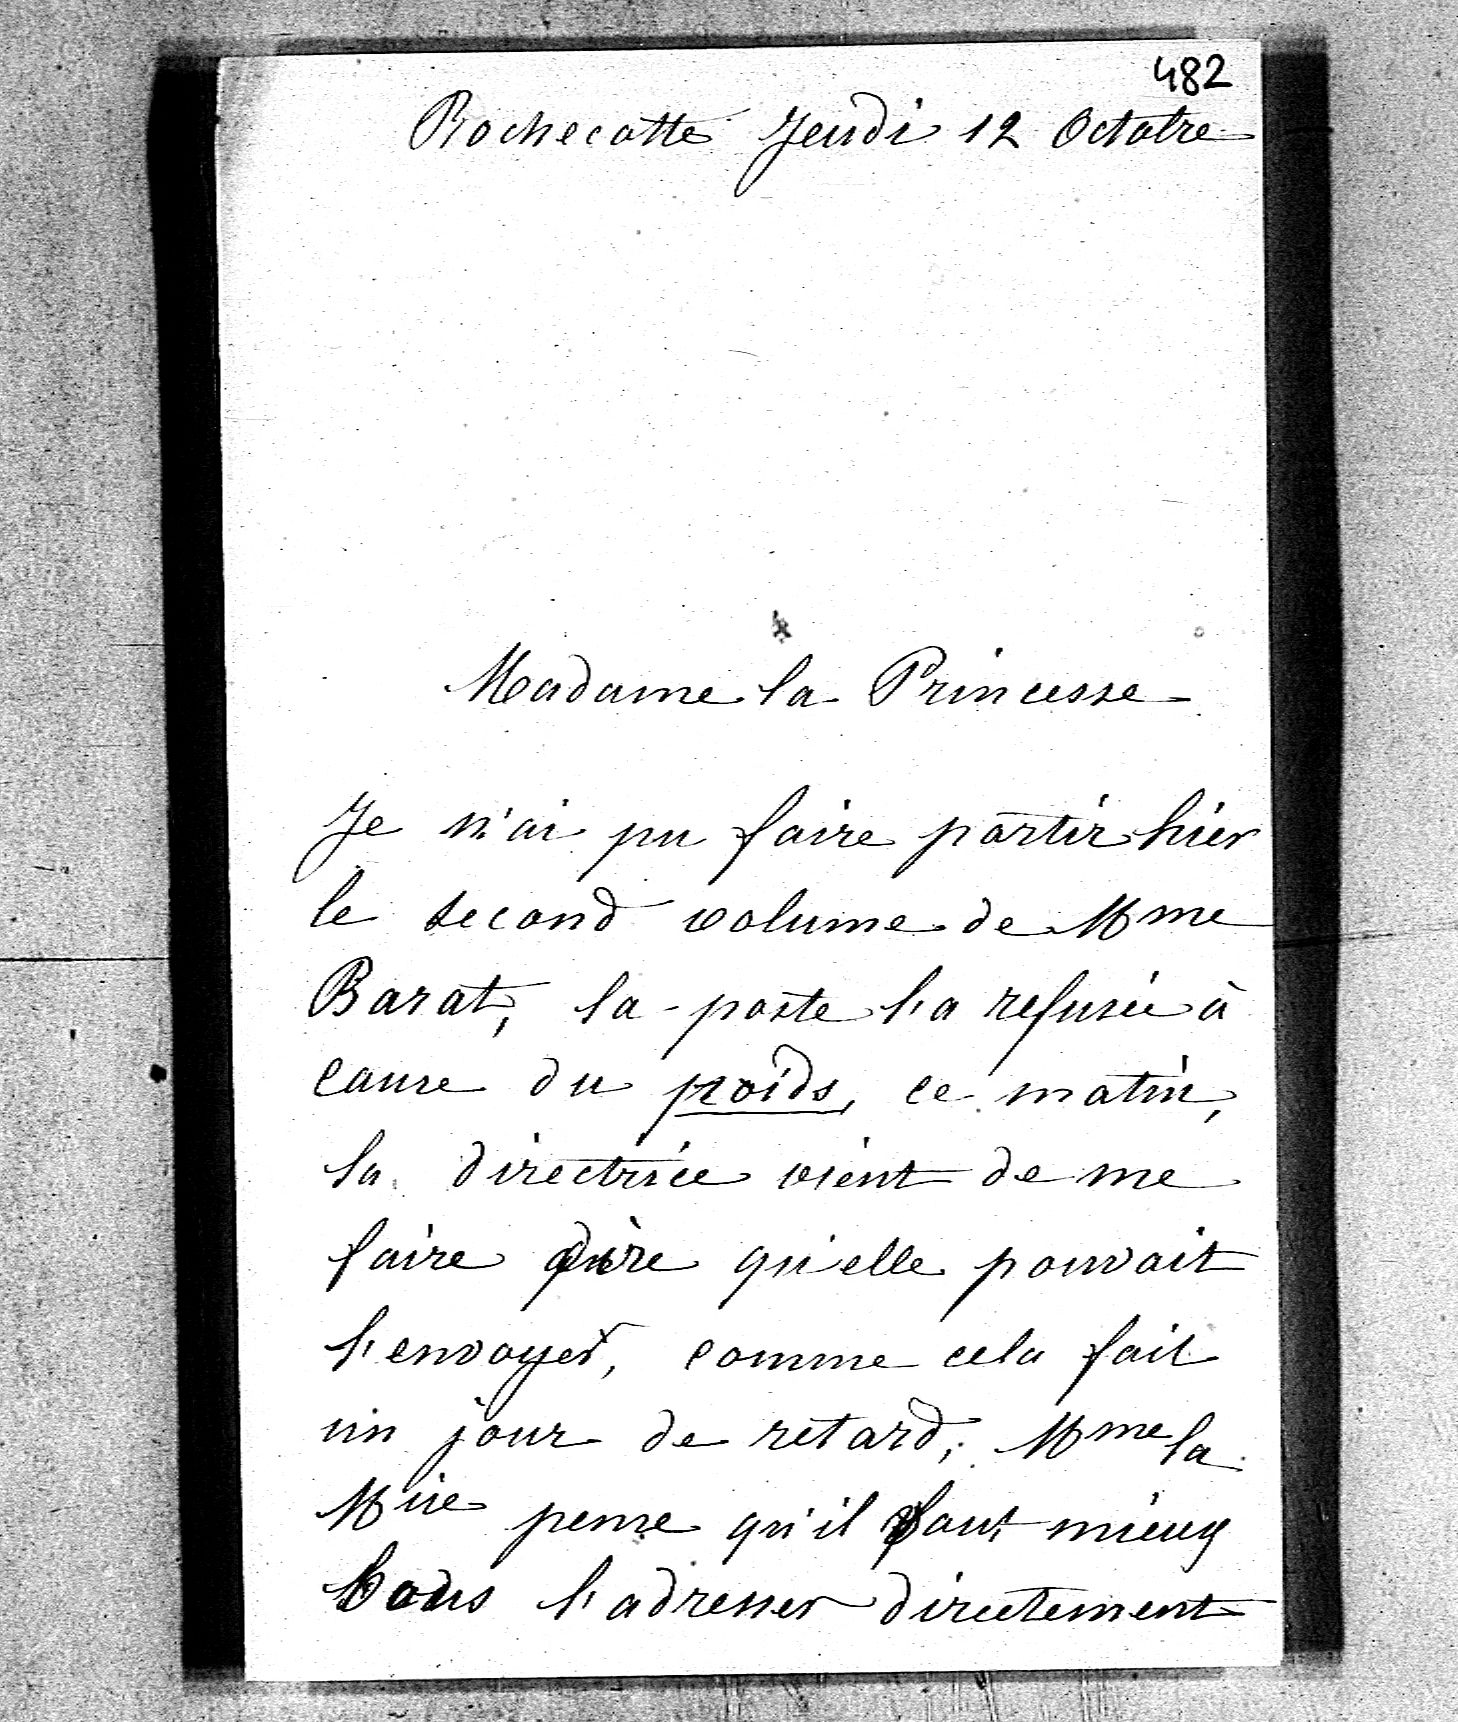 482
Rochecotte Jeudi 12 Octobre
Madame la Princesse
Je n'ai pu faire partir hier
le second volume de Mme
Barat, la poste l'a refusée à
cause du poids, ce matin,
la directrice vient de me
faire dire qu'elle pouvait
l'envoyer, comme cela fait
un jour de retard, Mme la
Mise pense qu'il vaut mieux
vous l'adresser directement